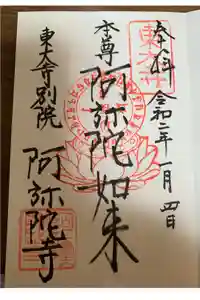 奉拝 令和二年一月四日
本尊 阿弥陀如来
東大寺別院 阿弥陀寺